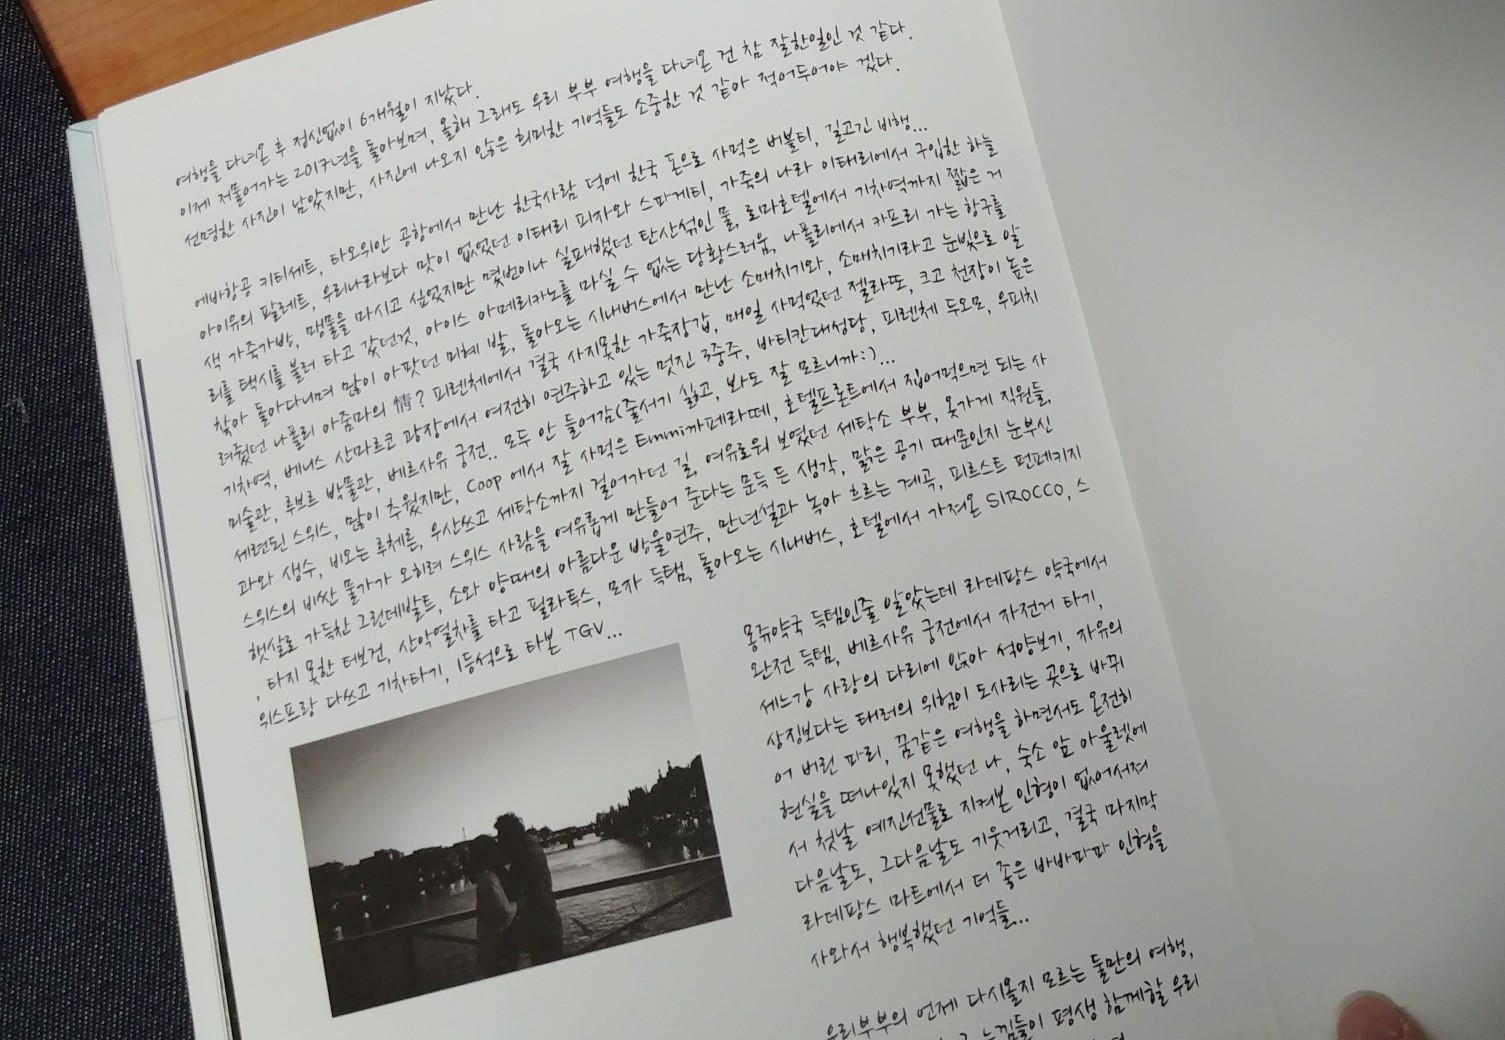 여행을 다녀온 후 정신없이 6개월이 지났다.
이제 저물어가는 2017년을 돌아보며, 올해 그래도 우리 부부 여행을 다녀온 건 참 잘한일인 것 같다.
선명한 사진이 남았지만, 사진에 나오지 않은 희미한 기억들도 소중한 것 같아 적어두어야 겠다.
에바항공 키티세트, 타오위안 공항에서 만난 한국사람 덕에 한국 돈으로 사먹은 버블티, 길고긴 비행...
아이유의 팔레트, 우리나라보다 맛이 없었던 이태리 피자와 스파게티, 가죽의 나라 이태리에서 구입한 하늘
색 가죽가방, 맹물을 마시고 싶었지만 몇번이나 실패했던 탄산섞인 물, 로마호텔에서 기차역까지 짧은 거
리를 택시를 불러 타고 갔던것, 아이스 아메리카노를 마실 수 없는 당황스러움, 나폴리에서 카프리 가는 항구를
찾아 돌아다니며 많이 아팟던 미혜 발, 돌아오는 시내버스에서 만난 소매치기와, 소매치기라고 눈빛으로 알
려줬던 나폴리 아줌마의 情? 피렌체에서 결국 사지못한 가죽장갑, 매일 사먹었던 젤라또, 크고 천장이 높은
기차역, 베니스 산마르코 광장에서 여전히 연주하고 있는 멋진 3중주, 바티칸대성당, 피렌체 두오모, 우피치
미술관, 루브르 박물관, 베르사유 궁전.. 모두 안 들어감(줄서기 싫고, 봐도 잘 모르니까:)...
세련된 스위스, 많이 추웠지만, Coop 에서 잘 사먹은 Emmi까페라떼, 호텔프론트에서 집어먹으면 되는 사
과와 생수, 비오는 루체른, 우산쓰고 세탁소까지 걸어가던 길, 여유로워 보였던 세탁소 부부, 옷가게 직원들,
스위스의 비싼 물가가 오히려 스위스 사람을 여유롭게 만들어 준다는 문득 든 생각, 맑은 공기 때문인지 눈부신
햇살로 가득찬 그린데발트, 소와 양떼의 아름다운 방울연주, 만년설과 녹아 흐르는 계곡, 피르스트 펀패키지
, 타지 못한 터보건, 산악열차를 타고 필라투스, 모자 득템, 돌아오는 시내버스, 호텔에서 가져온 SIROCCO, 스
위스프랑 다쓰고 기차타기, 1등석으로 타본 TGV...
몽쥬약국 득템인줄 알았는데 라데팡스 약국에서
완전 득템, 베르사유 궁전에서 자전거 타기,
세느강 사랑의 다리에 앉아 석양보기, 자유의
상징보다는 태러의 위험이 도사리는 곳으로 바뀌
어 버린 파리, 꿈같은 여행을 하면서도 온전히
현실을 떠나있지 못했던 나, 숙소 앞 아울렛에
서 첫날 예진선물로 지켜본 인형이 없어서져
다음날도, 그다음날도 기웃거리고, 결국 마지막
라데팡스 마트에서 더 좋은 바바파파 인형을
사와서 행복했던 기억들...
우리부부의 언제 다시올지 모르는 둘만의 여행,
느낌들이 평생 함께할 우리